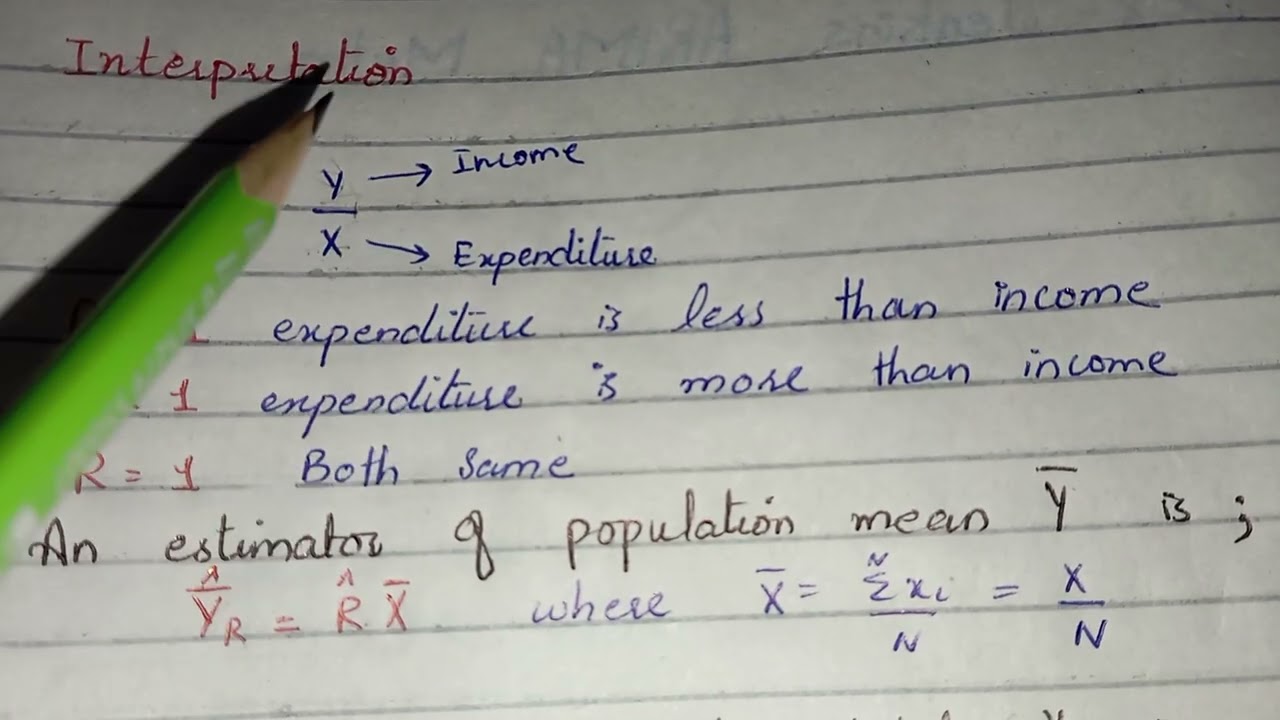 Interpretation
Y → Income
X → Expenditure
1 expenditure is less than income
1 expenditure is more than income
R = 1 Both same
An estimator of population mean Y̅ is ;
Y̅̂_R = R̂ X̅ where X̅ = Σ^N x_i / N = X / N